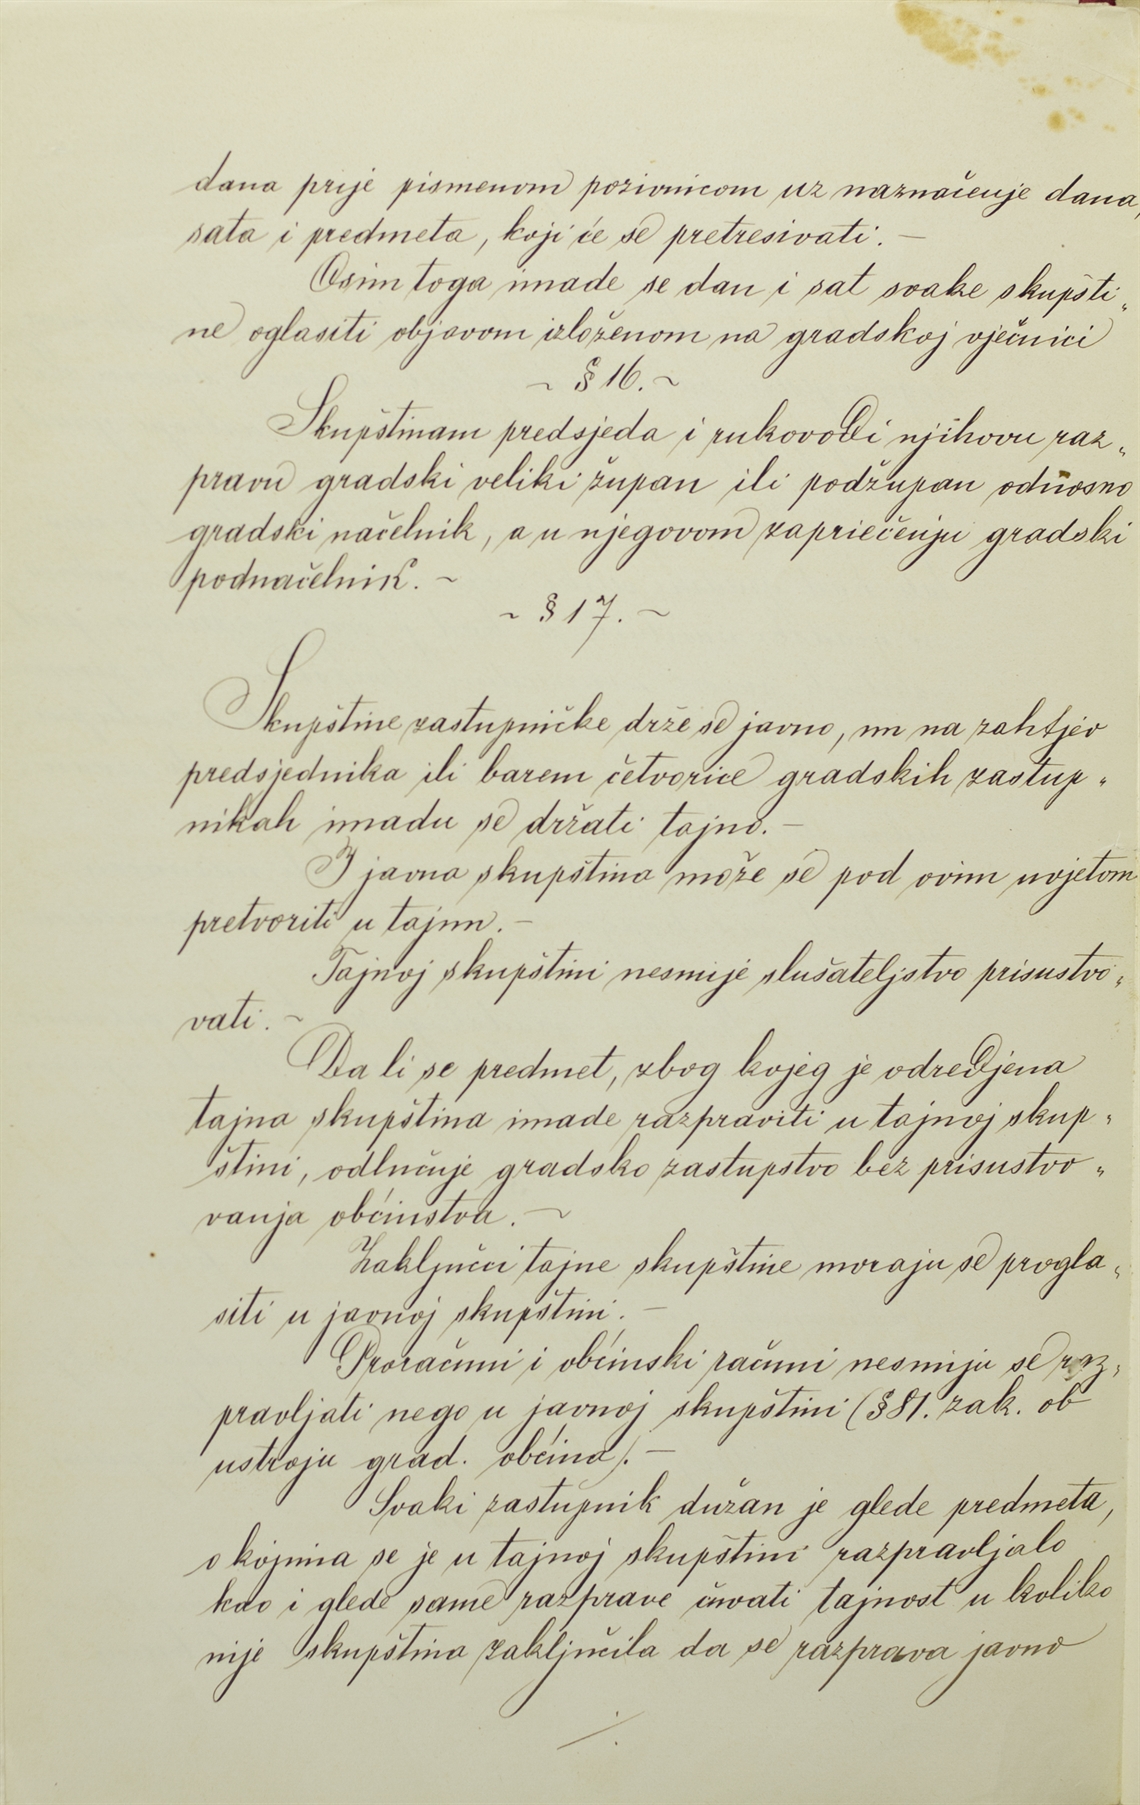 dana prije pismenom pozivnicom uz naznačenje dana,
sata i predmeta, koji će se pretresivati. —
Osim toga imade se dan i sat svake skupšti„
ne oglasiti objavom izloženom na gradskoj vječnici
~ § 16. ~
Skupštinam predsjeda i rukovodi njihovu raz„
pravu gradski veliki župan ili podžupan odnosno
gradski načelnik, a u njegovom zapriečenju gradski
podnačelnik. ~
~ § 17. ~
Skupštine zastupničke drže se javno, nu na zahtjev
predsjednika ili barem četvorice gradskih zastup„
nikah imadu se držati tajno. —
I javna skupština može se pod ovim uvjetom
pretvoriti u tajnu. —
Tajnoj skupštini nesmije slušateljstvo prisustvo„
vati. ~
Da li se predmet, zbog kojeg je odredjena
tajna skupština imade razpraviti u tajnoj skup„
štini, odlučuje gradsko zastupstvo bez prisustvo„
vanja obćinstva. ~
Zaključci tajne skupštine moraju se progla„
siti u javnoj skupštini. —
Proračuni i obćinski računi nesmiju se raz„
pravljati nego u javnoj skupštini (§ 81. zak. ob
ustroju grad. obćina). —
Svaki zastupnik dužan je glede predmeta,
o kojima se je u tajnoj skupštini razpravljalo
kao i glede same razprave čuvati tajnost u koliko
nije skupština zaključila da se razprava javno
./.